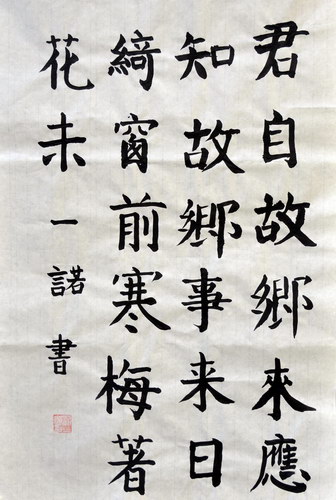 君自故鄉來應
知故鄉事来日
綺窗前寒梅著
花未一諾書